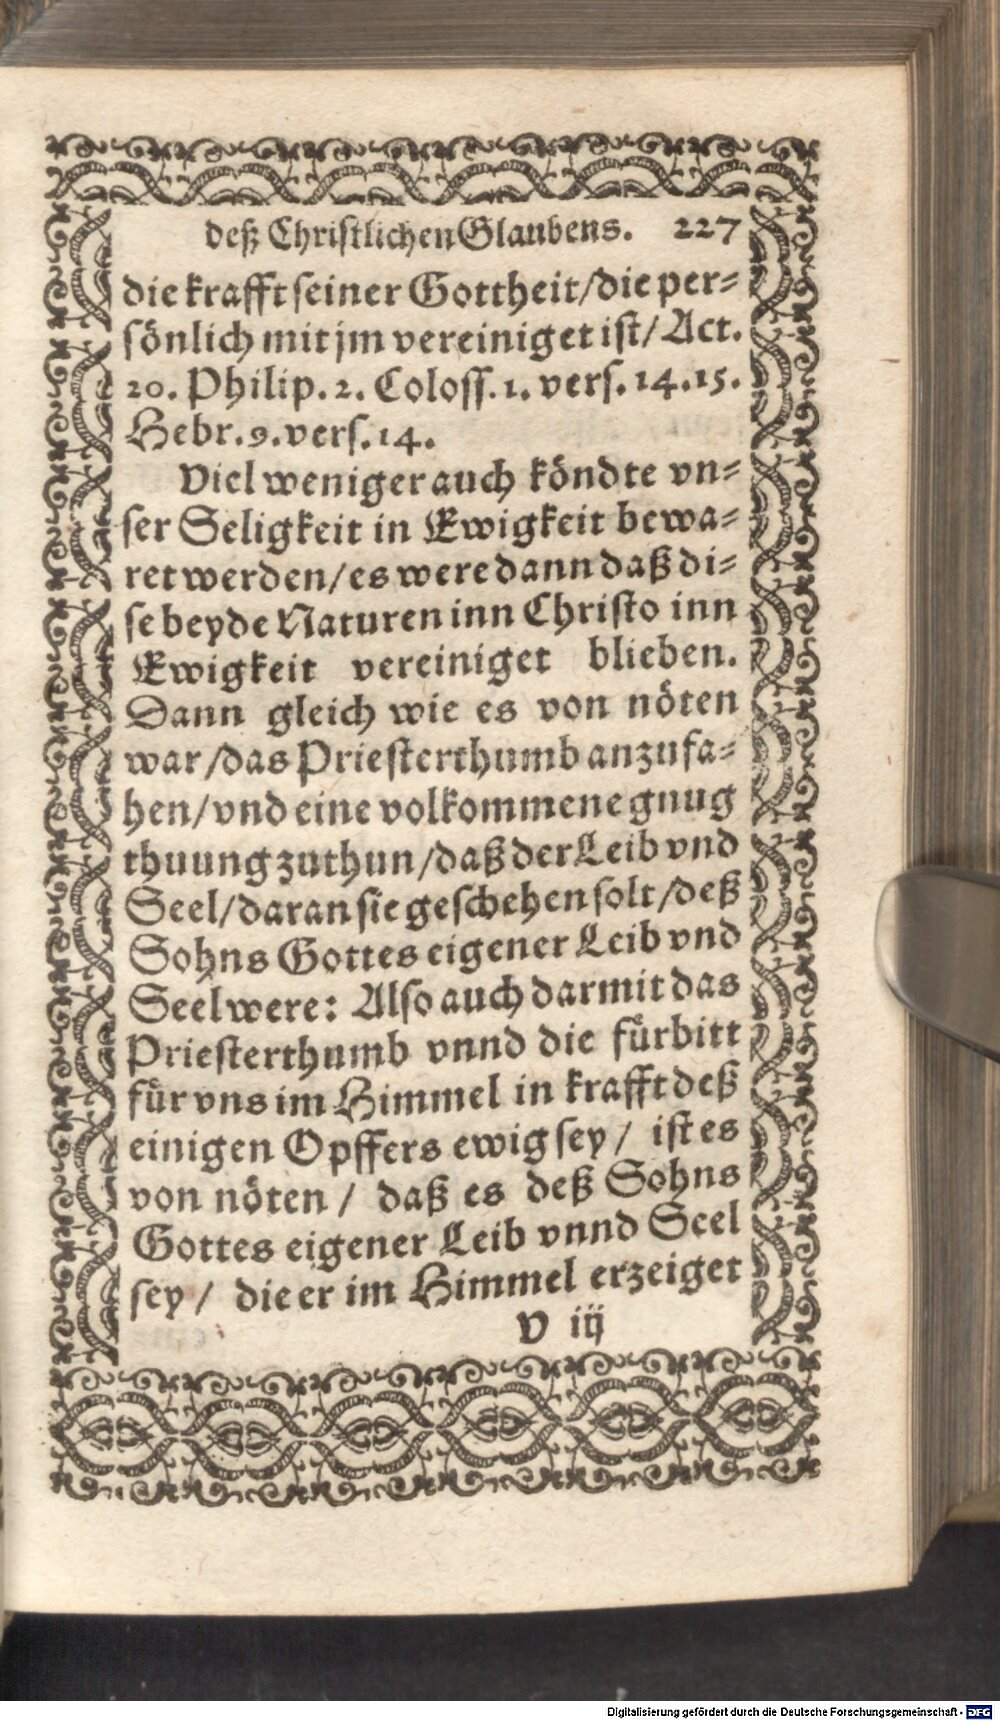 deß Christlichen Glaubens. 227
die krafft seiner Gottheit/die per⸗
sönlich mit jm vereiniget ist/ Act.
20. Philip. 2. Coloss. 1. vers. 14. 15.
Hebr. 9. vers. 14.
Viel weniger auch köndte vn⸗
ser Seligkeit in Ewigkeit bewa⸗
ret werden/es were dann daß di⸗
se beyde Naturen inn Christo inn
Ewigkeit vereiniget blieben.
Dann gleich wie es von nöten
war/das Priesterthumb anzufa⸗
hen/vnd eine volkommene gnug
thuung zuthun/daß der Leib vnd
Seel/daran sie geschehen solt/deß
Sohns Gottes eigener Leib vnd
Seel were: Also auch darmit das
Priesterthumb vnnd die fürbitt
für vns im Himmel in krafft deß
einigen Opffers ewig sey/ ist es
von nöten/ daß es deß Sohns
Gottes eigener Leib vnnd Seel
sey/ die er im Himmel erzeiget
V iij
Digitalisierung gefördert durch die Deutsche Forschungsgemeinschaft - DFG